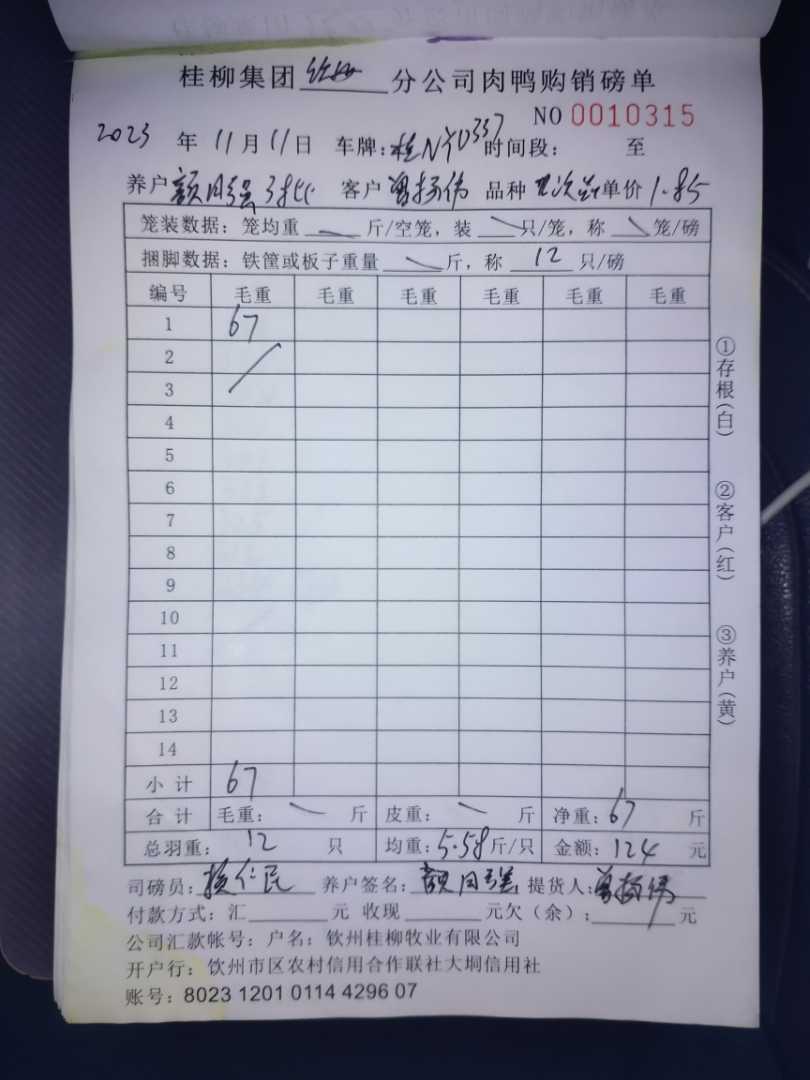 桂柳集团 钦州 分公司肉鸭购销磅单
NO 0010315
2023 年 11月11日 车牌: 时间段: 至
养户 3批 客户 曾扬伟 品种 次 单价 1.85
笼装数据: 笼均重 斤/空笼, 装 只/笼, 称 笼/磅
捆脚数据: 铁筐或板子重量 斤, 称 12 只/磅
编号 毛重 毛重 毛重 毛重 毛重 毛重
1 67
2
3
4
5
6
7
8
9
10
11
12
13
14
小 计 67
合 计 毛重: 斤 皮重: 斤 净重: 67 斤
总羽重: 12 只 均重: 5.58 斤/只 金额: 124 元
司磅员: 仁民 养户签名: 提货人: 曾扬伟
付款方式: 汇 元 收现 元欠(余): 元
公司汇款帐号: 户名: 钦州桂柳牧业有限公司
开户行: 钦州市区农村信用合作联社大垌信用社
账号: 8023 1201 0114 4296 07
①存根(白)
②客户(红)
③养户(黄)